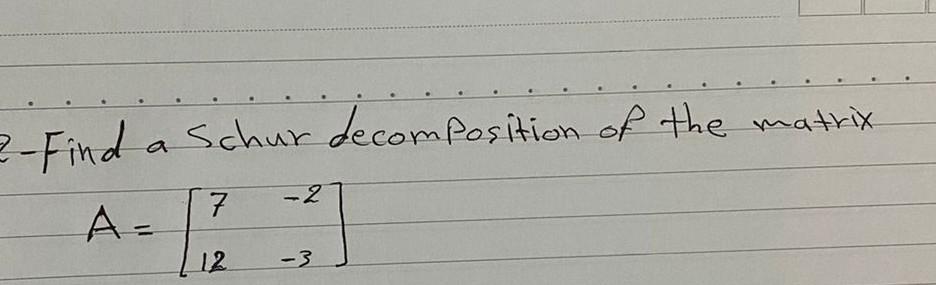 2-Find a Schur decomposition of the matrix
A = [ 7 -2
12 -3 ]